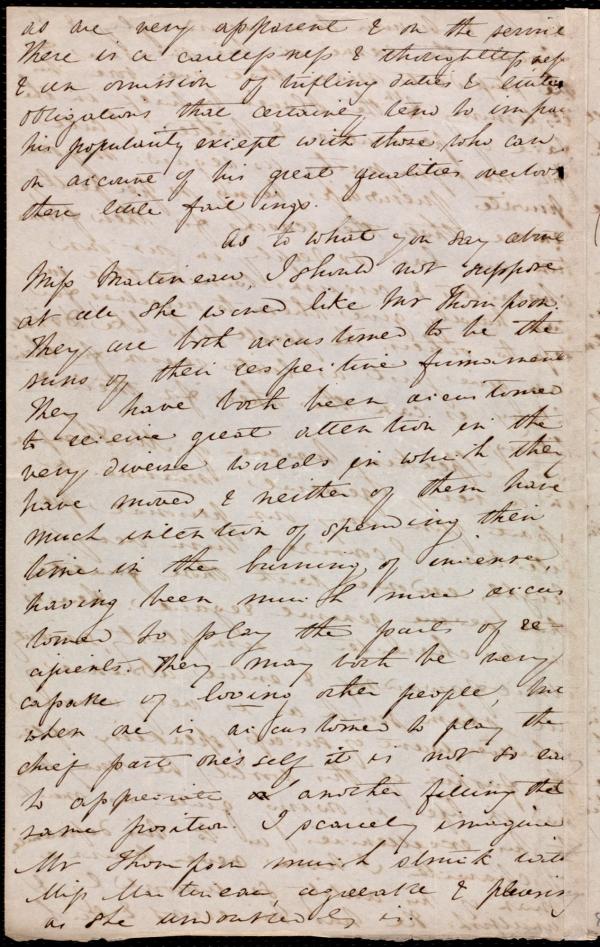 as are very apparent & on the
There is a carelessness & thoughtlessness
& an omission of trifling duties & little
obligations that certainly tend to impair
his popularity except with those who can
on account of his great qualities overlook
these little failings.
As to what you say about
Miss Martineau, I should not suppose
at all she would like Mr Thompson.
They are both accustomed to be the
suns of their respective firmament
They have both been accustomed
to receive great attention in the
very diverse worlds in which they
have moved, & neither of them have
much intention of spending their
time in the burning of incense,
having been much more accus
tomed to play the parts of re-
cipients. They may both be very
capable of loving other people, but
when one is accustomed to play the
chief part one's self it is not so easy
to appreciate another filling the
same position. I scarcely imagine
Mr Thompson much struck with
Miss Martineau, agreeable & pleasing
as she undoubtedly is.